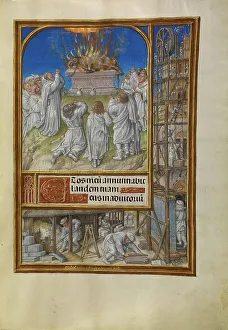 Et os meũ annuntiabit
laudem tuam
Deus in adiutoriũ